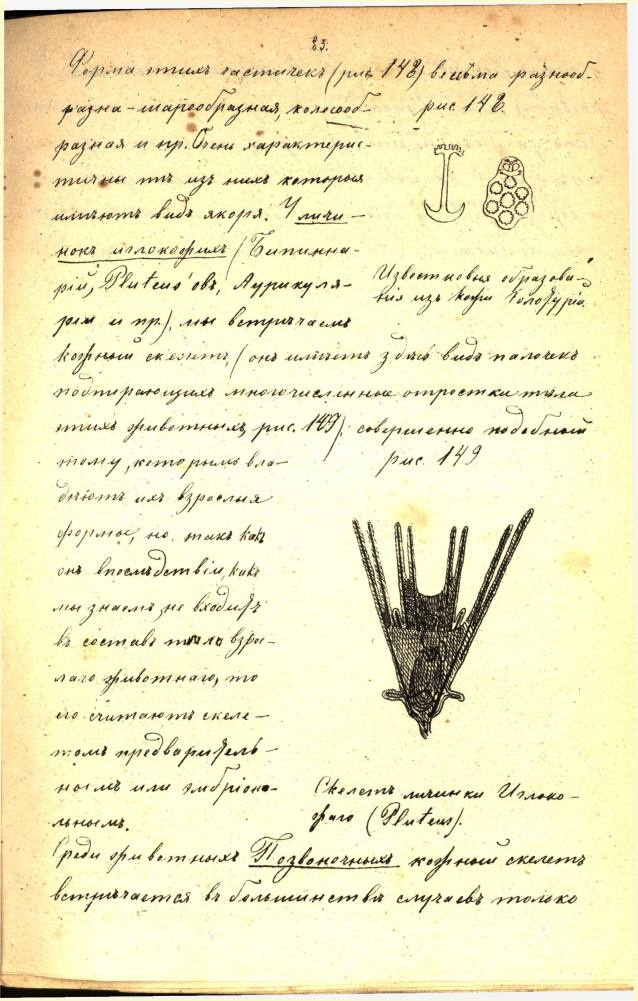 83.
Форма этихъ частичекъ (рис. 148) весьма разнооб-
разна - шарообразная, колесооб-
рис. 148.
разная и пр. Очень характерис-
тичны тѣ изъ нихъ которыя
имѣютъ видъ якоря. У личи-
нокъ иглокожихъ (Бипинна-
рій, Pluteus'овъ, Аурикуля-
рем и пр.), мы встрѣчаемъ
Известковыя образова-
нія изъ кожи Голотуріи.
кожный скелетъ, (онъ имѣетъ здѣсь видъ палочекъ
подпирающихъ многочисленные отростки тѣла
этихъ животныхъ, рис. 149), совершенно подобный
тому, которымъ вла-
рис. 149
дѣютъ ихъ взрослыя
формы, но такъ какъ
онъ впослѣдствіи, какъ
мы знаемъ, не входитъ
въ составъ тѣла взрос-
лаго животнаго, то
его считаютъ скеле-
томъ предваритель-
нымъ или эмбріона-
льнымъ.
Скелетъ личинки Иглоко-
жаго (Pluteus).
Среди животныхъ Позвоночныхъ кожный скелетъ
встрѣчается въ большинствѣ случаевъ только